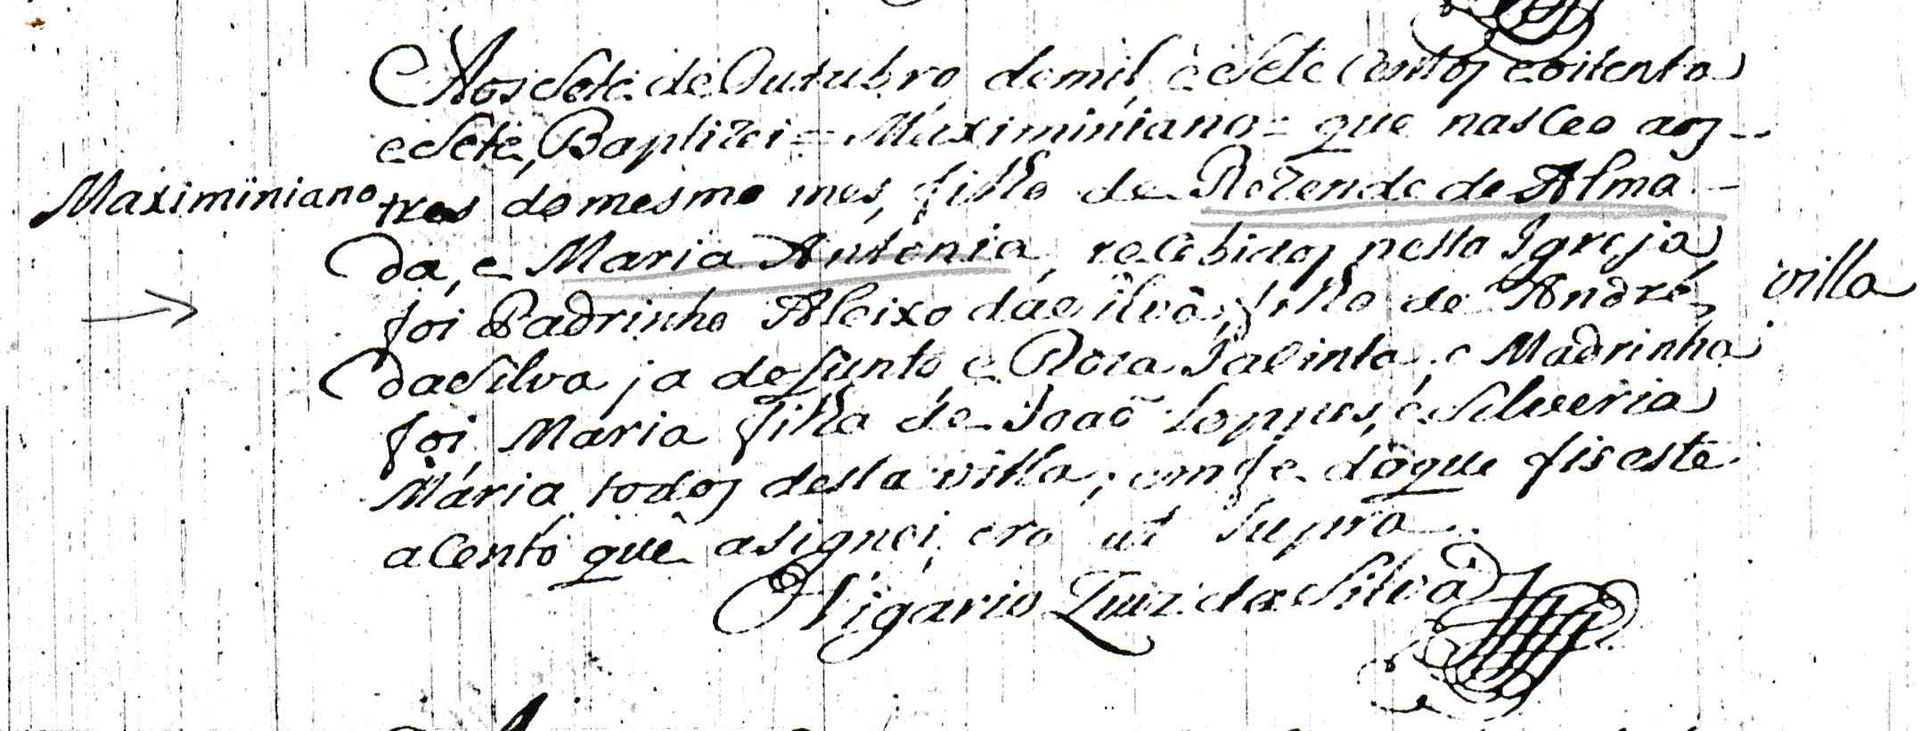 Aos Sete de Outubro de mil, e Sete Centos e oitenta
e Sete, Baptizei = Maximiniano = que nasceo aos
Maximiniano
tres do mesmo mes, filho de Rezende de Alma
da, e Maria Antonia, recebidos nesta Igreja
foi Padrinho Aleixo da Silva, filho de André
villa
da Silva ja defunto, e Roza Jacinta, e Madrinha
foi Maria filha de Joaõ Loppes, e Silveria
Maria todos desta villa, em fe do que fis este
acento que asignei era ut supra
O Vigario Luiz da Silva